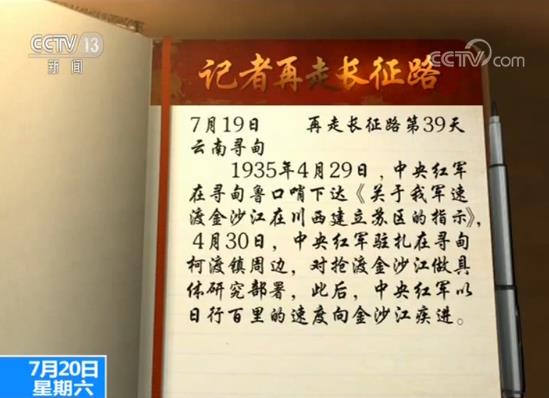 CCTV 13
新闻
CCTV.com
记者再走长征路
7月19日 再走长征路第39天
云南寻甸
1935年4月29日，中央红军
在寻甸鲁口哨下达《关于我军速
渡金沙江在川西建立苏区的指示》，
4月30日，中央红军驻扎在寻甸
柯渡镇周边，对抢渡金沙江做具
体研究部署，此后，中央红军以
日行百里的速度向金沙江疾进。
7月20日
星期六